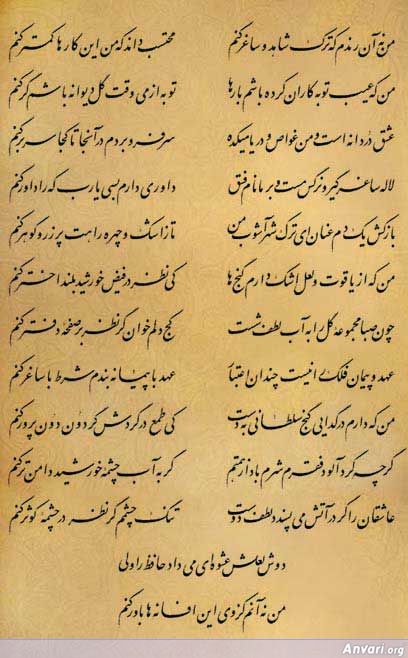 من نه آن رندم که ترک شاهد و ساغر کنم محتسب داند که من این کارها کمتر کنم
من که عیب توبه کاران کرده باشم بارها توبه از می وقت گل دیوانه باشم گر کنم
عشق دردانه است و من غواص و دریا میکده سر فرو بردم در آنجا تا کجا سر بر کنم
لاله ساغر گیر و نرگس مست و بر ما نام فسق داوری دارم بسی یا رب که را داور کنم
بازکش یک دم عنان ای ترک شهر آشوب من تا ز اشک و چهره راهت پر زر و گوهر کنم
من که از یاقوت و لعل اشک دارم گنج ها کی نظر در فیض خورشید بلند اختر کنم
چون صبا مجموعه گل را به آب لطف شست کج دلم خوان گر نظر بر صفحه دفتر کنم
عهد و پیمان فلک را نیست چندان اعتبار عهد با پیمانه بندم شرط با ساغر کنم
من که دارم در گدایی گنج سلطانی به دست کی طمع در گردش گردون دون پرور کنم
گرچه گرد آلود فقرم شرم باد از همتم گر به آب چشمه خورشید دامن تر کنم
عاشقان را گر در آتش می پسندد لطف دوست تنگ چشمم گر نظر در چشمه کوثر کنم
دوش لعلش عشوه ای می داد حافظ را ولی
من نه آنم کز وی این افسانه ها باور کنم
Anvari.org